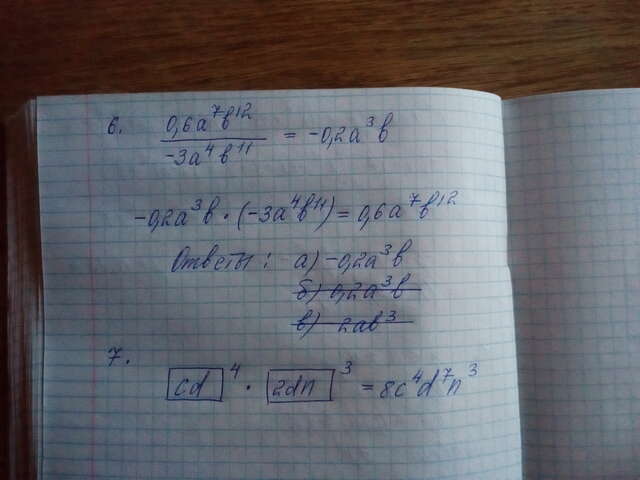 6. 0,6a⁷b¹² / -3a⁴b¹¹ = -0,2a³b
-0,2a³b · (-3a⁴b¹¹) = 0,6a⁷b¹²
Ответы: а) -0,2a³b
б) 0,2a³b
в) 2ab³
7.
cd ⁴ · 2dn ³ = 8c⁴d⁷n³